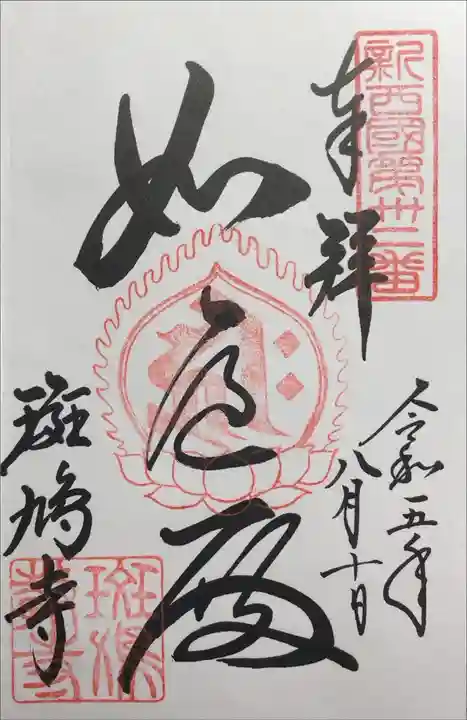 新西國第卅二番
奉拝
令和五年
八月十日
如意殿
斑鳩寺
斑鳩寺